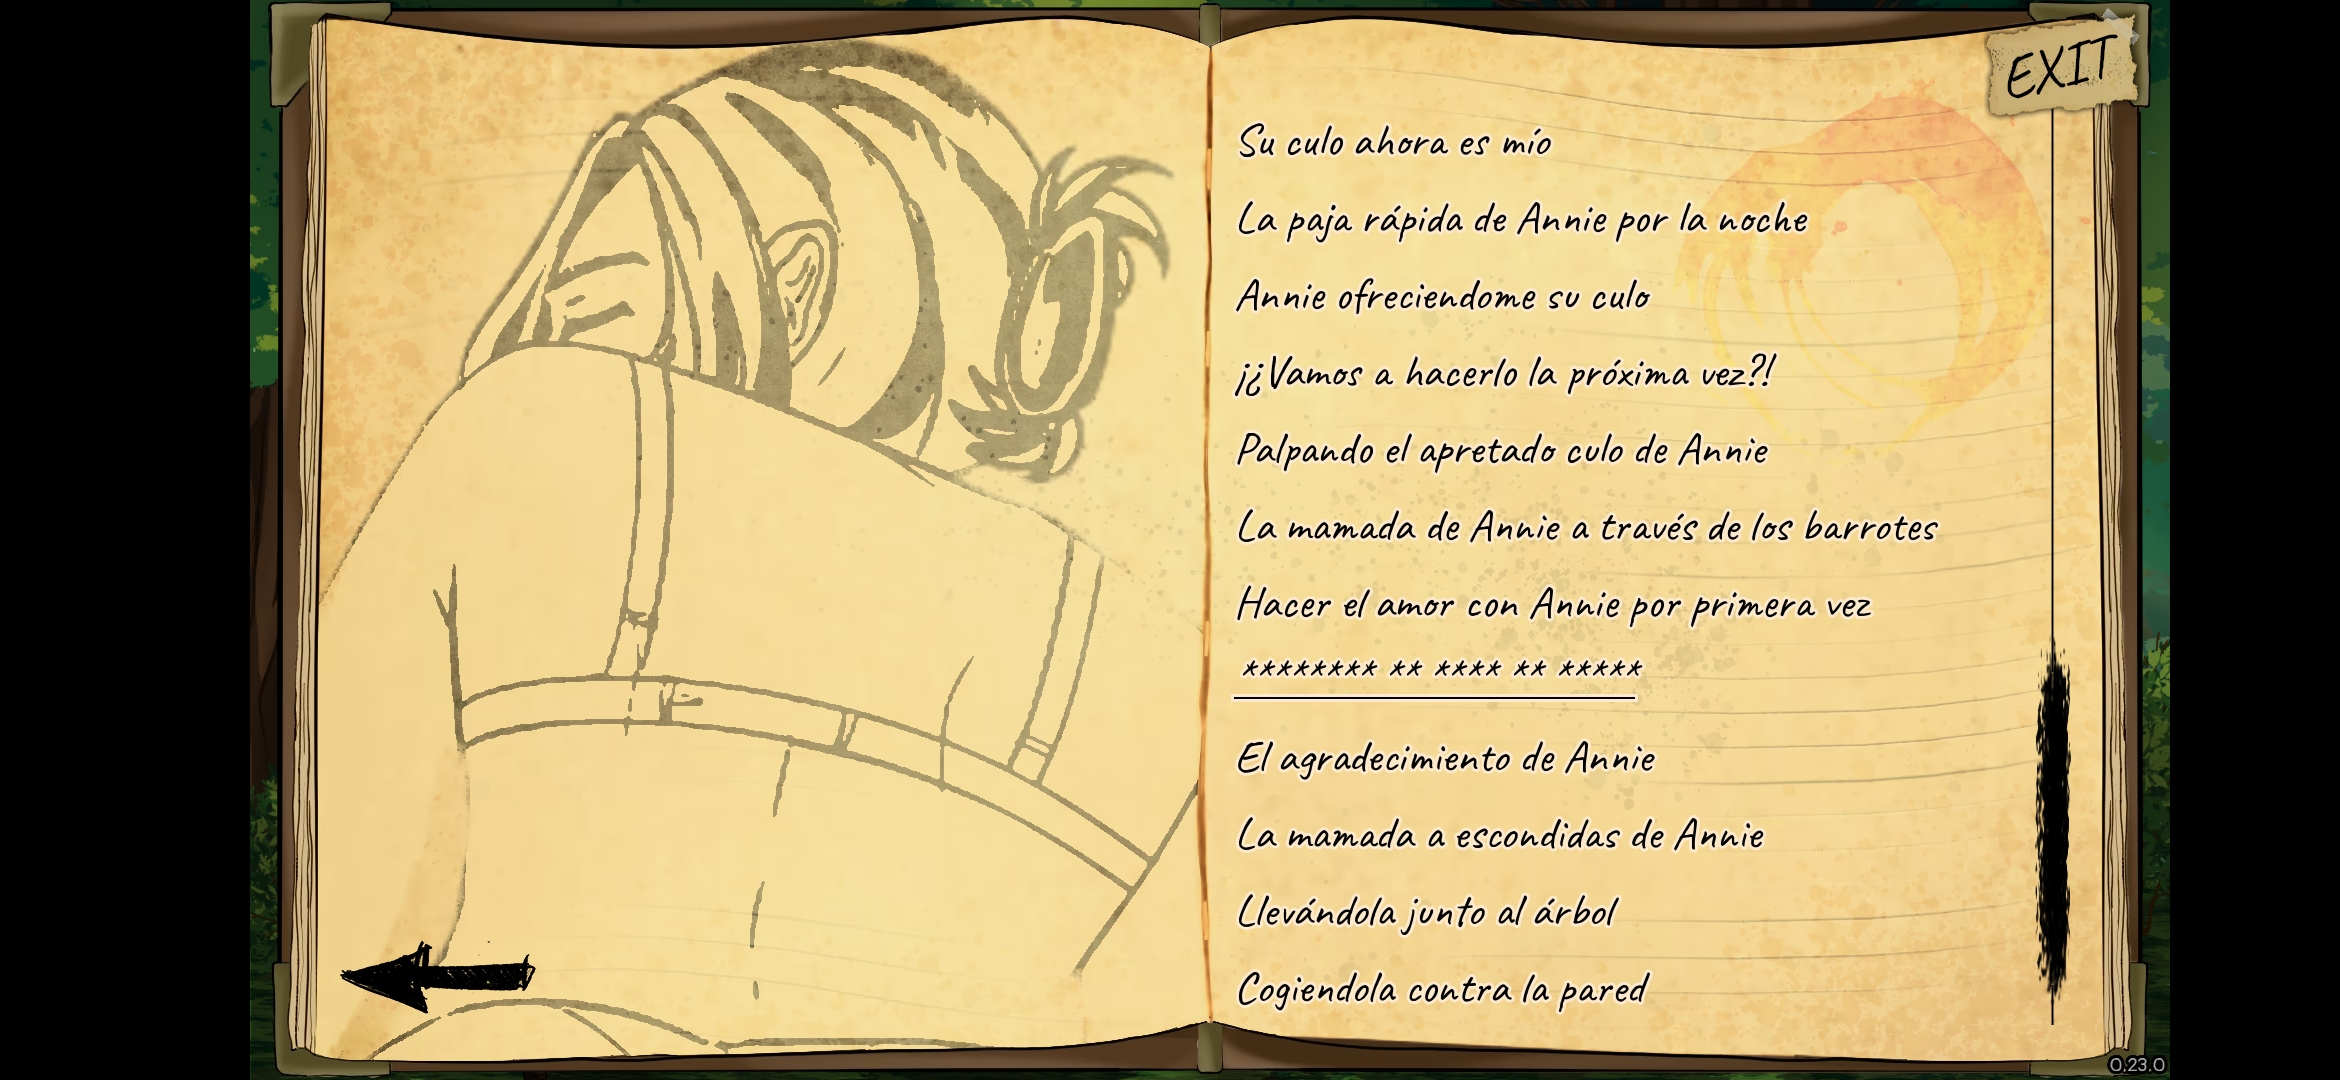 EXIT
Su culo ahora es mío
La paja rápida de Annie por la noche
Annie ofreciendome su culo
¡¿Vamos a hacerlo la próxima vez?!
Palpando el apretado culo de Annie
La mamada de Annie a través de los barrotes
Hacer el amor con Annie por primera vez
******** ** **** ** *****
El agradecimiento de Annie
La mamada a escondidas de Annie
Llevándola junto al árbol
Cogiendola contra la pared
0.23.0